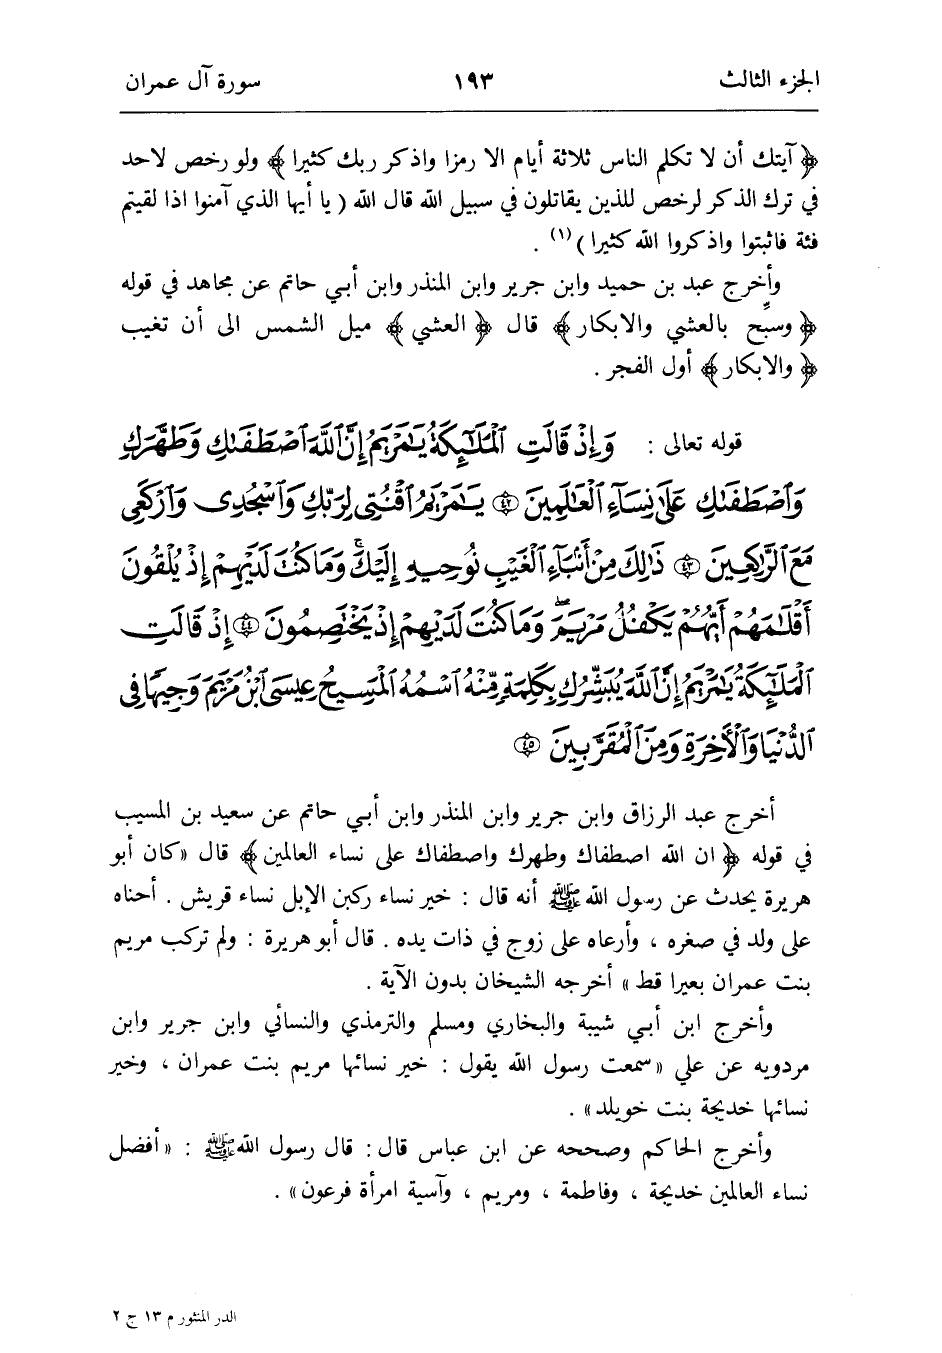 الجزء الثالث ١٩٣ سورة آل عمران
﴿ آيتك أن لا تكلم الناس ثلاثة أيام الا رمزا واذكر ربك كثيرا ﴾ ولو رخص لاحد
في ترك الذكر لرخص للذين يقاتلون في سبيل الله قال الله ( يا أيها الذي آمنوا اذا لقيتم
فئة فاثبتوا واذكروا الله كثيرا ) (١) .
وأخرج عبد بن حميد وابن جرير وابن المنذر وابن أبي حاتم عن مجاهد في قوله
﴿ وسبِّح بالعشي والابكار ﴾ قال ﴿ العشي ﴾ ميل الشمس الى أن تغيب
﴿ والابكار ﴾ أول الفجر .
قوله تعالى : وَإِذْ قَالَتِ ٱلْمَلَٰٓئِكَةُ يَٰمَرْيَمُ إِنَّ ٱللَّهَ ٱصْطَفَىٰكِ وَطَهَّرَكِ
وَٱصْطَفَىٰكِ عَلَىٰ نِسَآءِ ٱلْعَٰلَمِينَ ﴿٤٢﴾ يَٰمَرْيَمُ ٱقْنُتِى لِرَبِّكِ وَٱسْجُدِى وَٱرْكَعِى
مَعَ ٱلرَّٰكِعِينَ ﴿٤٣﴾ ذَٰلِكَ مِنْ أَنۢبَآءِ ٱلْغَيْبِ نُوحِيهِ إِلَيْكَ ۚ وَمَا كُنتَ لَدَيْهِمْ إِذْ يُلْقُونَ
أَقْلَٰمَهُمْ أَيُّهُمْ يَكْفُلُ مَرْيَمَ ۖ وَمَا كُنتَ لَدَيْهِمْ إِذْ يَخْتَصِمُونَ ﴿٤٤﴾ إِذْ قَالَتِ
ٱلْمَلَٰٓئِكَةُ يَٰمَرْيَمُ إِنَّ ٱللَّهَ يُبَشِّرُكِ بِكَلِمَةٍ مِّنْهُ ٱسْمُهُ ٱلْمَسِيحُ عِيسَى ٱبْنُ مَرْيَمَ وَجِيهًا فِى
ٱلدُّنْيَا وَٱلْأَخِرَةِ وَمِنَ ٱلْمُقَرَّبِينَ ﴿٤٥﴾
أخرج عبد الرزاق وابن جرير وابن المنذر وابن أبي حاتم عن سعيد بن المسيب
في قوله ﴿ ان الله اصطفاك وطهرك واصطفاك على نساء العالمين ﴾ قال «كان أبو
هريرة يحدث عن رسول الله ﷺ أنه قال : خير نساء ركبن الإبل نساء قريش . أحناه
على ولد في صغره ، وأرعاه على زوج في ذات يده . قال أبو هريرة : ولم تركب مريم
بنت عمران بعيرا قط» أخرجه الشيخان بدون الآية .
وأخرج ابن أبي شيبة والبخاري ومسلم والترمذي والنسائي وابن جرير وابن
مردويه عن علي «سمعت رسول الله يقول : خير نسائها مريم بنت عمران ، وخير
نسائها خديجة بنت خويلد» .
وأخرج الحاكم وصححه عن ابن عباس قال : قال رسول الله ﷺ : «أفضل
نساء العالمين خديجة ، وفاطمة ، ومريم ، وآسية امرأة فرعون» .
الدر المنثور م ١٣ ج ٢